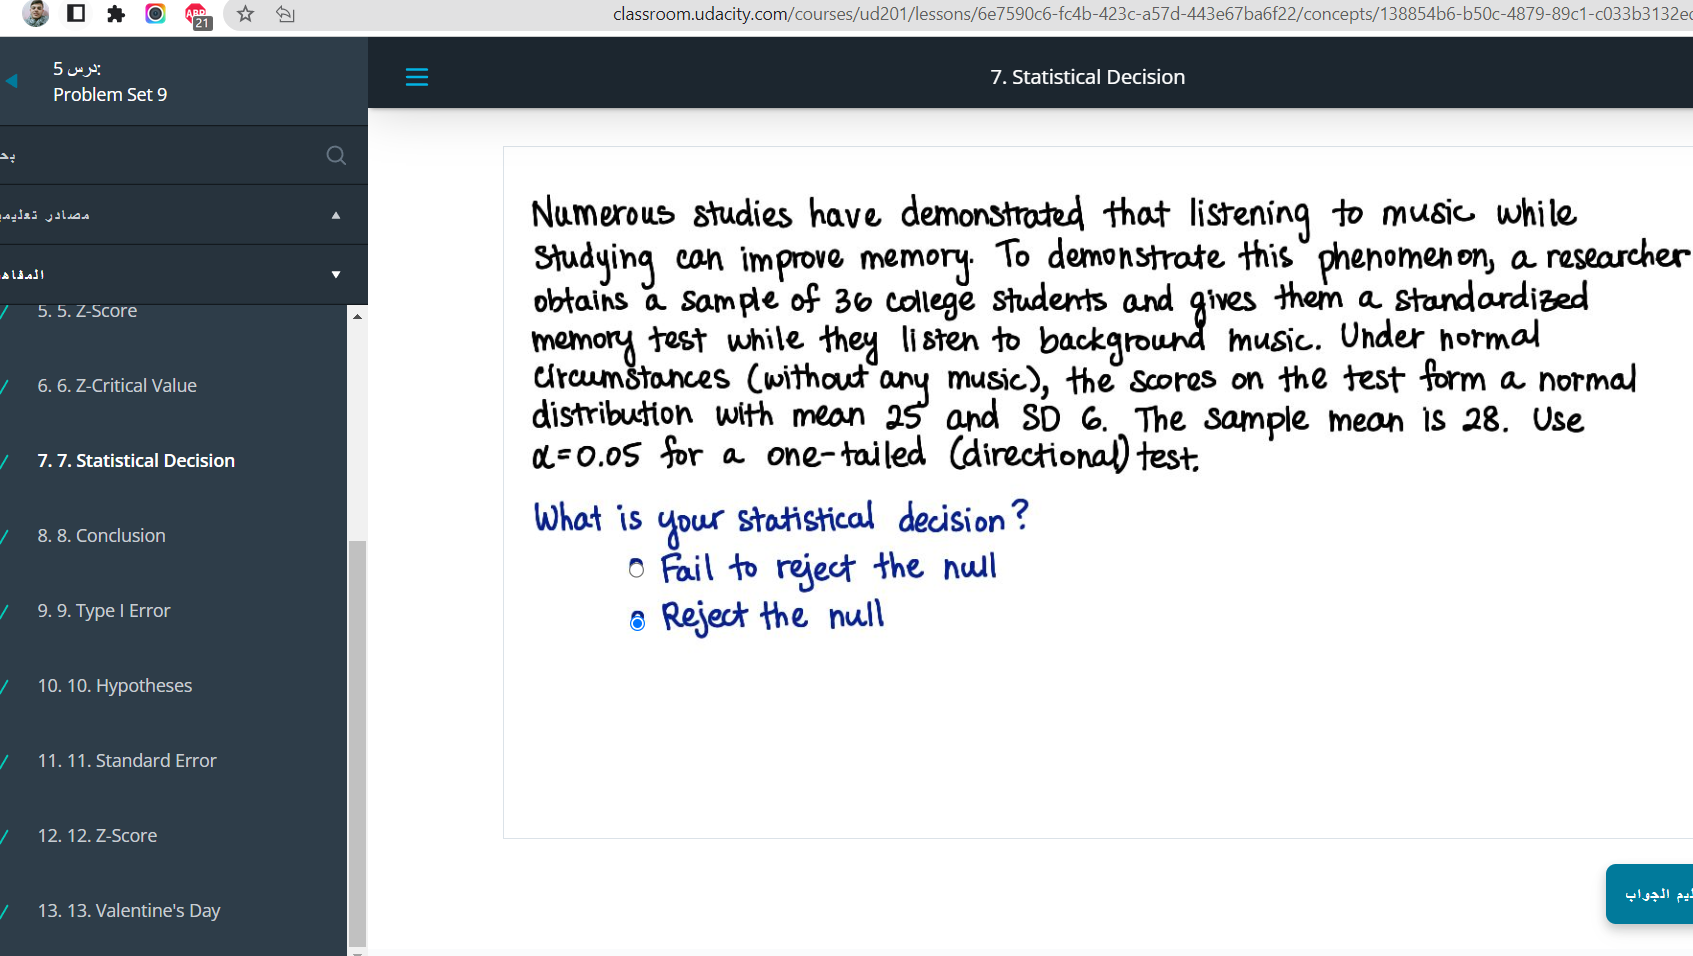 ABP
21
classroom.udacity.com/courses/ud201/lessons/6e7590c6-fc4b-423c-a57d-443e67ba6f22/concepts/138854b6-b50c-4879-89c1-c033b3132e
درس 5:
Problem Set 9
7. Statistical Decision
بح
مصادر تعليمي
المفاه
5. 5. Z-Score
6. 6. Z-Critical Value
7. 7. Statistical Decision
8. 8. Conclusion
9. 9. Type I Error
10. 10. Hypotheses
11. 11. Standard Error
12. 12. Z-Score
13. 13. Valentine's Day
Numerous studies have demonstrated that listening to music while
studying can improve memory. To demonstrate this phenomenon, a researcher
obtains a sample of 36 college students and gives them a standardized
memory test while they listen to background music. Under normal
circumstances (without any music), the scores on the test form a normal
distribution with mean 25 and SD 6. The sample mean is 28. Use
α=0.05 for a one-tailed (directional) test.
What is your statistical decision?
Fail to reject the null
Reject the null
يم الجواب